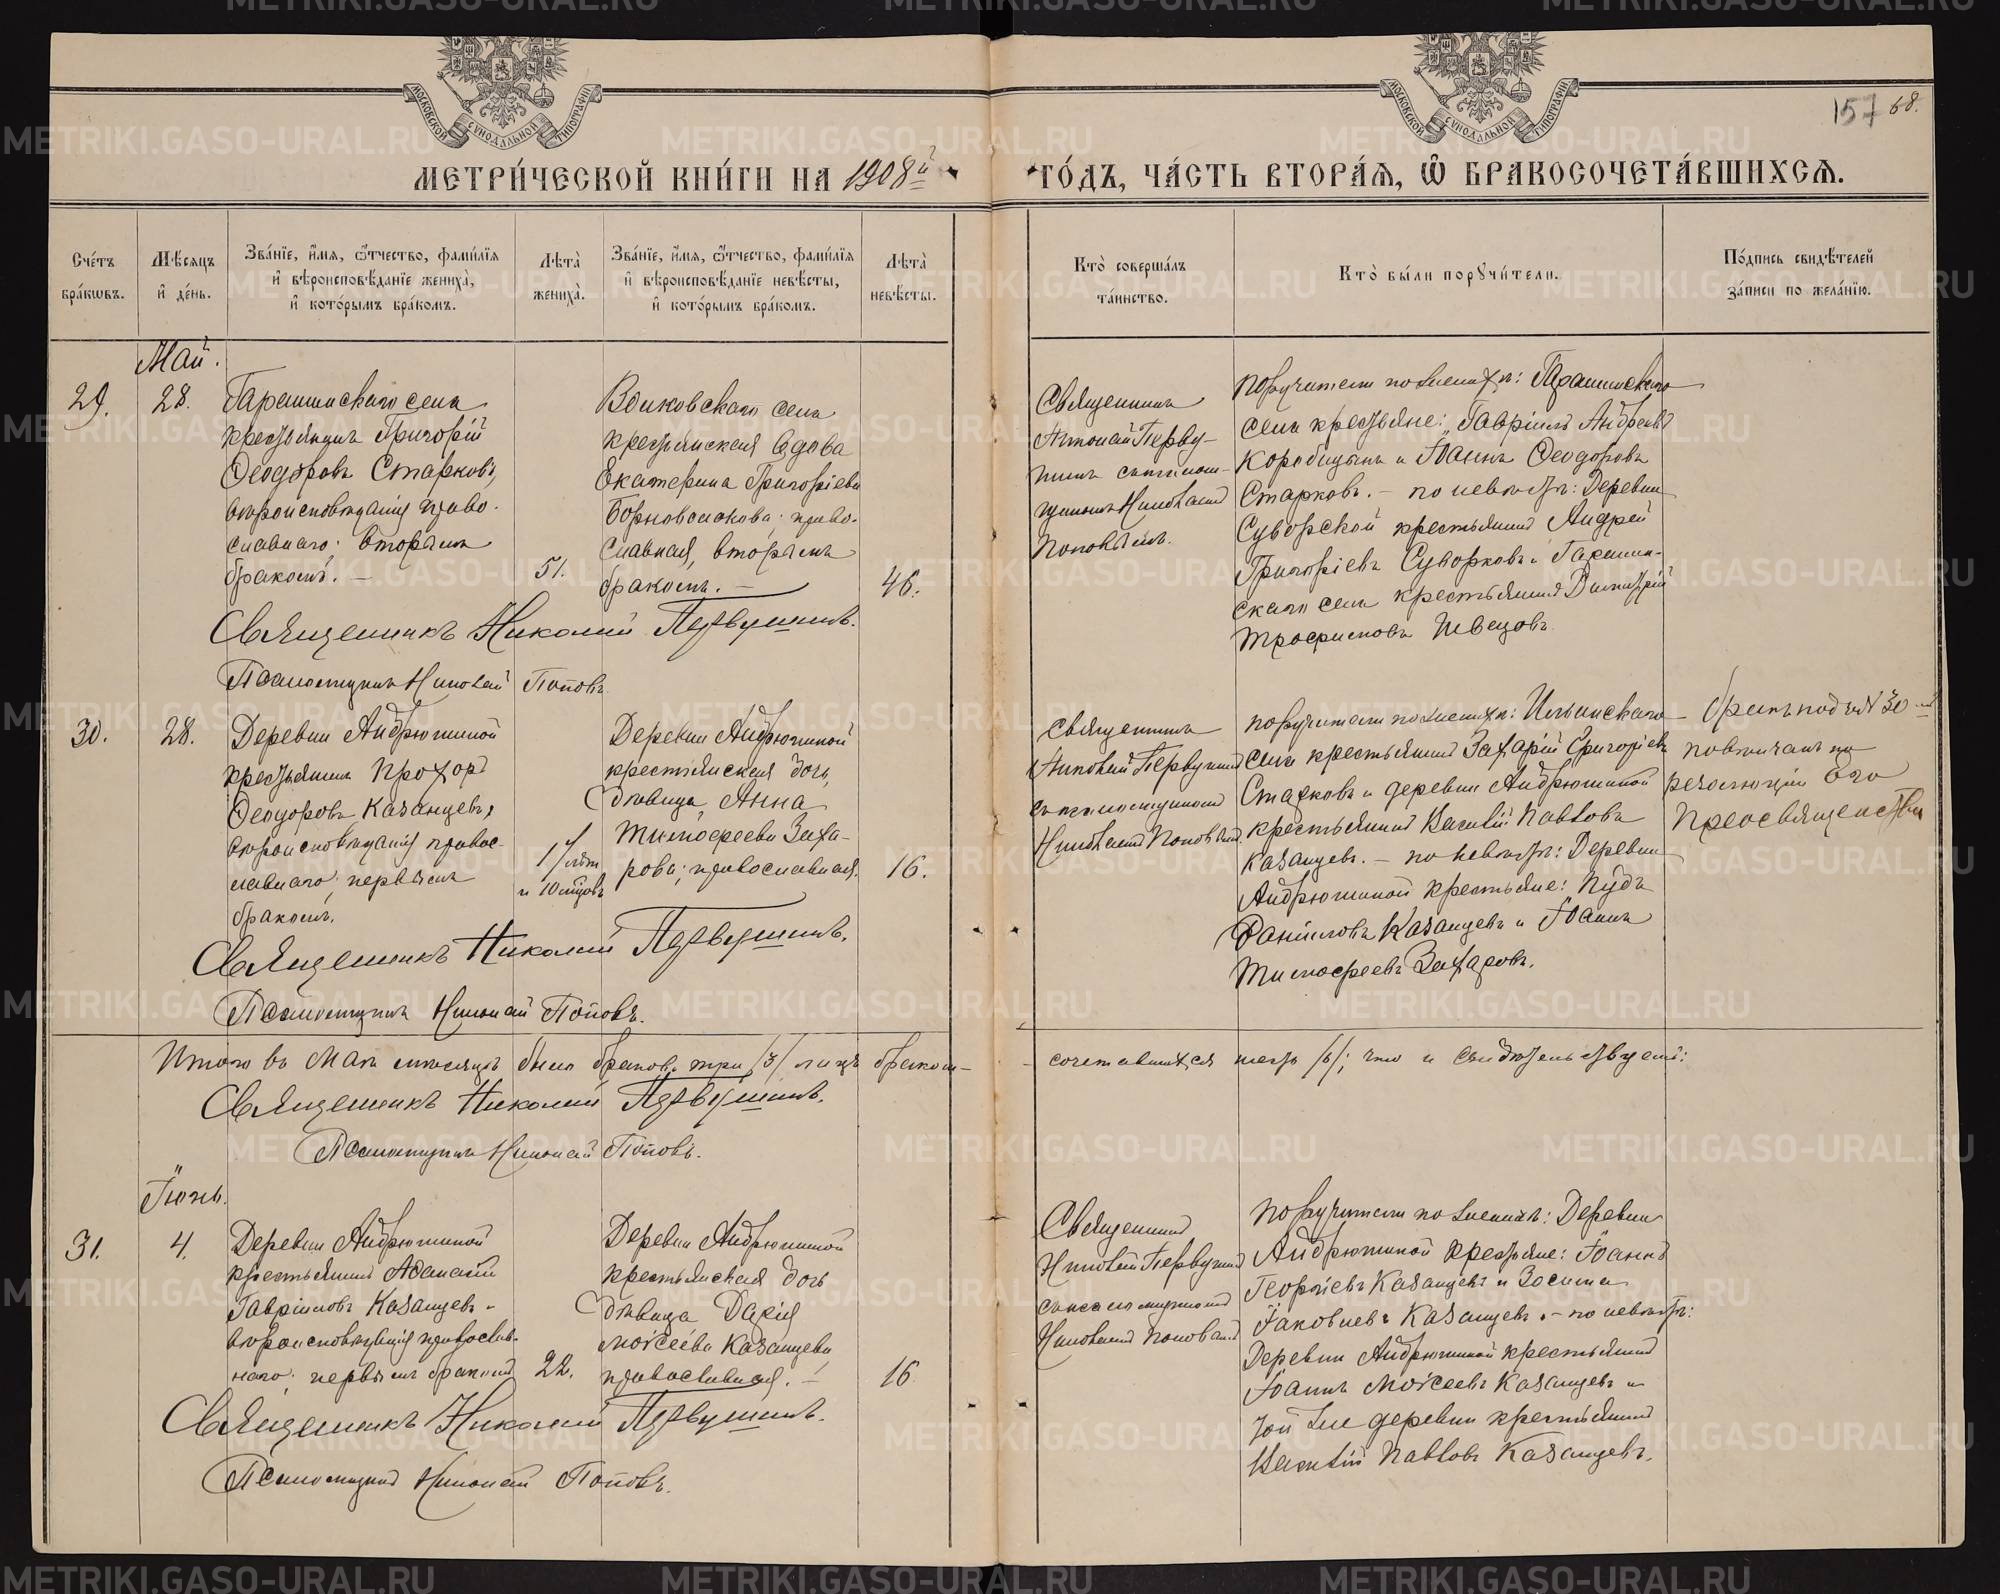 МОСКОВСКОЙ СѴНОДАЛЬНОЙ ТИПОГРАФІИ
МОСКОВСКОЙ СѴНОДАЛЬНОЙ ТИПОГРАФІИ
157 68.
МЕТРИ́ЧЕСКОЙ КНИ́ГИ НА 1908й
ГО́ДЪ, ЧА́СТЬ ВТОРА́Ѧ, Ѿ БРАКОСОЧЕТА́ВШИХСѦ.
Сче́тъ
бра́кѡвъ.
Мѣ́сяцъ
и҆ де́нь.
Зва́нїе, и҆́мѧ, ѻ҆́тчество, фами́лїѧ
и҆ вѣроисповѣ́данїе жениха̀,
и҆ кото́рымъ бра́комъ.
Лѣта̀
жениха̀.
Зва́нїе, и҆́мѧ, ѻ҆́тчество, фами́лїѧ
и҆ вѣроисповѣ́данїе невѣ́сты,
и҆ кото́рымъ бра́комъ.
Лѣта̀
невѣ́сты.
Кто̀ соверша́лъ
та́инство.
Кто̀ бы́ли порꙋчи́тели.
По́дпись свидѣ́телей
за́писи по жела́нїю.
Май.
29.
28.
Гарашинскаго села
крестьянинъ Григорій
Ѳеодоровъ Старковъ,
вѣроисповѣданія право-
славнаго; вторымъ
бракомъ. —
51.
Волковскаго села
крестьянская вдова
Екатерина Григоріева
право-
славная, вторымъ
бракомъ. —
46.
Священникъ
Николай Перву-
шинъ съ псалом-
щикомъ Николаемъ
Поповымъ.
Поручители по женихѣ: Гарашинскаго
села крестьяне: Гавріилъ Андреевъ
Коробицынъ и Іоаннъ Ѳеодоровъ
Старковъ. — по невѣстѣ: Деревни
Суворской крестьянинъ Андрей
Григоріевъ Суворковъ и Гарашин-
скаго села крестьянинъ Димитрій
Трофимовъ Швецовъ.
Священникъ Николай Первушинъ.
Псаломщикъ Николай Поповъ.
30.
28.
Деревни Андрюшиной
крестьянинъ Прохоръ
Ѳеодоровъ Казанцевъ,
вѣроисповѣданія правос-
лавнаго; первымъ
бракомъ.
17 лѣт
и 10 мѣцовъ
Деревни Андрюшиной
крестьянская дочь,
дѣвица Анна
Тимофеева Заха-
рова; православная.
16.
Священникъ
Николай Первушинъ
съ псаломщикомъ
Николаемъ Поповымъ.
Поручители по женихѣ: Ильинскаго
села крестьянинъ Захарій Григоріевъ
Старковъ и деревни Андрюшиной
крестьянинъ Василій Павловъ
Казанцевъ. — по невѣстѣ: Деревни
Андрюшиной крестьяне: Пудъ
Даніиловъ Казанцевъ и Іоаннъ
Тимофеевъ Захаровъ.
Бракъ подъ № 30-мъ
повѣнчанъ по
резолюціи Его
Преосвященства
Священникъ Николай Первушинъ.
Псаломщикъ Николай Поповъ.
Итого въ Маѣ мѣсяцѣ было браковъ три /3/ лицъ бракомъ-
сочетавшихся шесть /6/; что и свидѣтельствуемъ:
Священникъ Николай Первушинъ.
Псаломщикъ Николай Поповъ.
Іюнь.
31.
4.
Деревни Андрюшиной
крестьянинъ Аѳанасій
Гавріиловъ Казанцевъ
вѣроисповѣданія православ-
наго; первымъ бракомъ
22.
Деревни Андрюшиной
крестьянская дочь
дѣвица Дарія
Моѵсеева Казанцева
православная. —
16.
Священникъ
Николай Первушинъ
съ псаломщикомъ
Николаемъ Поповымъ
Поручители по женихѣ: Деревни
Андрюшиной крестьяне: Іоаннъ
Георгіевъ Казанцевъ и Зосима
Іаковлевъ Казанцевъ. — по невѣстѣ:
Деревни Андрюшиной крестьянинъ
Іоаннъ Моѵсеевъ Казанцевъ и
той же деревни крестьянинъ
Василій Павловъ Казанцевъ.
Священникъ Николай Первушинъ.
Псаломщикъ Николай Поповъ.
METRIKI.GASO-URAL.RU